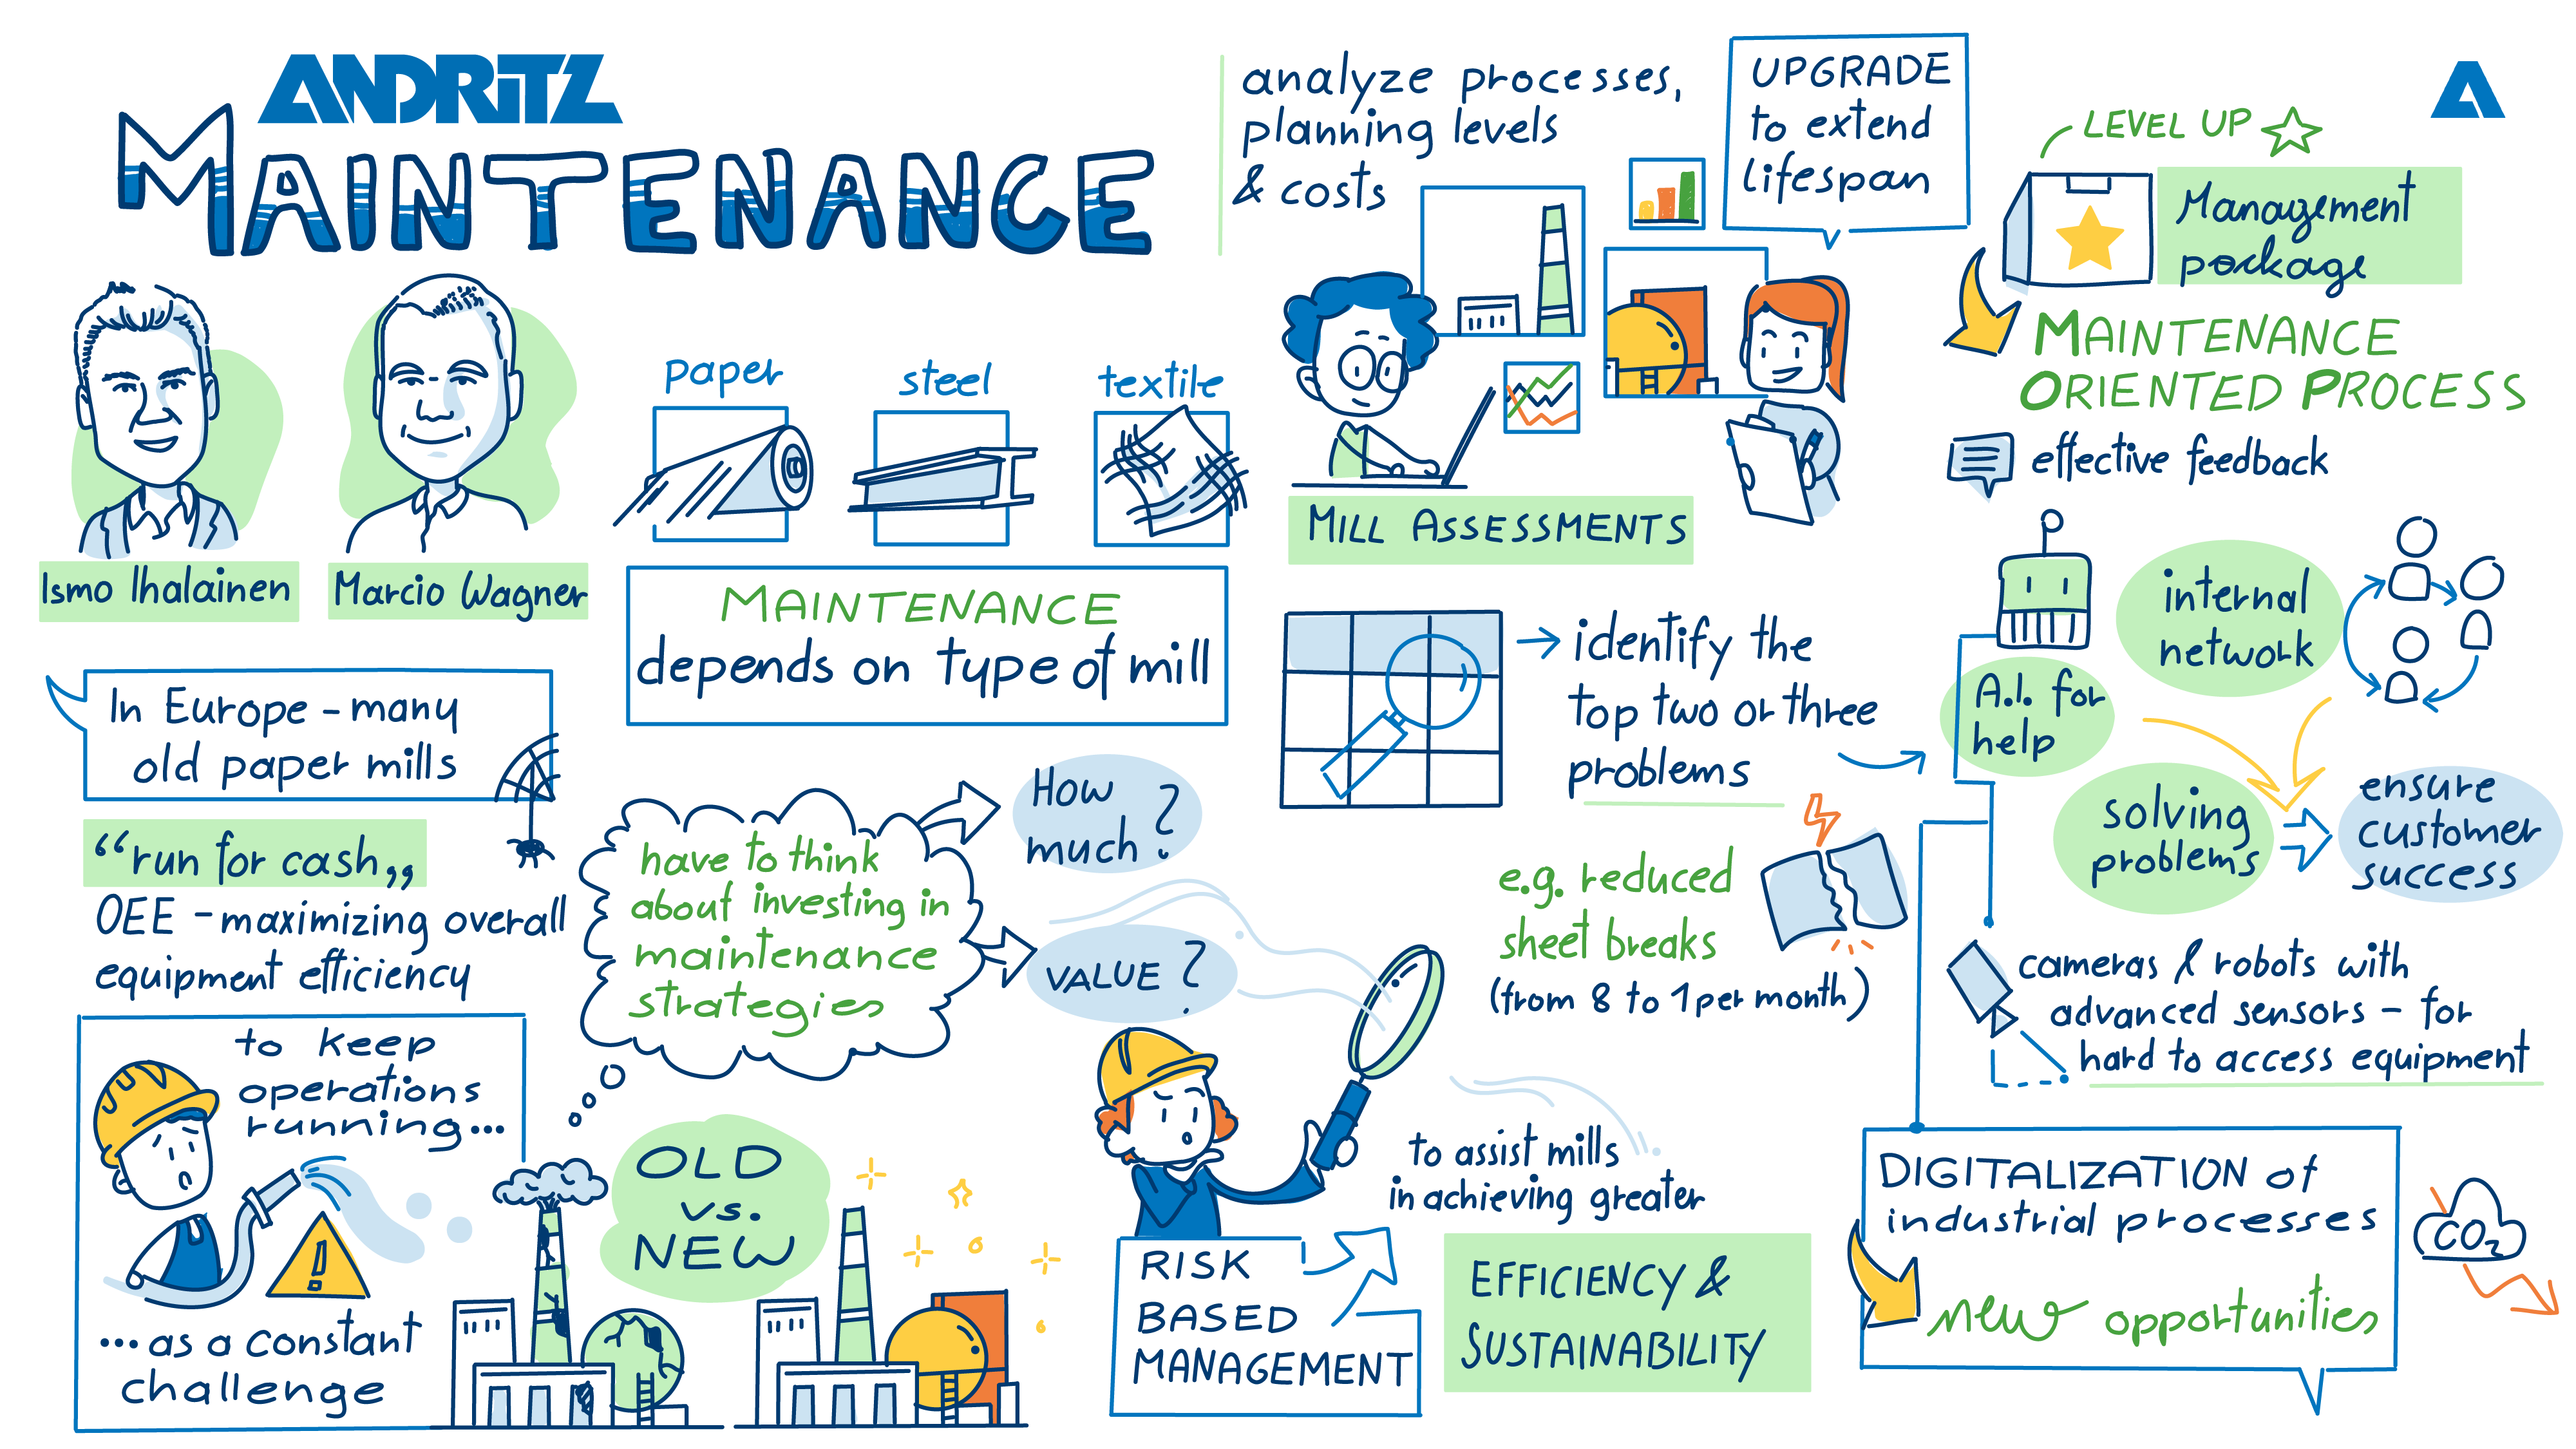 ANDRITZ
MAINTENANCE
Ismo Ihalainen
Marcio Wagner
paper
steel
textile
MAINTENANCE
depends on type of mill
In Europe - many
old paper mills
“run for cash„
OEE - maximizing overall
equipment efficiency
to keep
operations
running...
...as a constant
challenge
have to think
about investing in
maintenance
strategies
How
much?
VALUE?
OLD
vs.
NEW
analyze processes,
planning levels
& costs
UPGRADE
to extend
lifespan
MILL ASSESSMENTS
identify the
top two or three
problems
e.g. reduced
sheet breaks
(from 8 to 1 per month)
RISK
BASED
MANAGEMENT
to assist mills
in achieving greater
EFFICIENCY &
SUSTAINABILITY
LEVEL UP
Management
package
MAINTENANCE
ORIENTED PROCESS
effective feedback
A.I. for
help
internal
network
solving
problems
ensure
customer
success
cameras & robots with
advanced sensors - for
hard to access equipment
DIGITALIZATION of
industrial processes
new opportunities
CO2